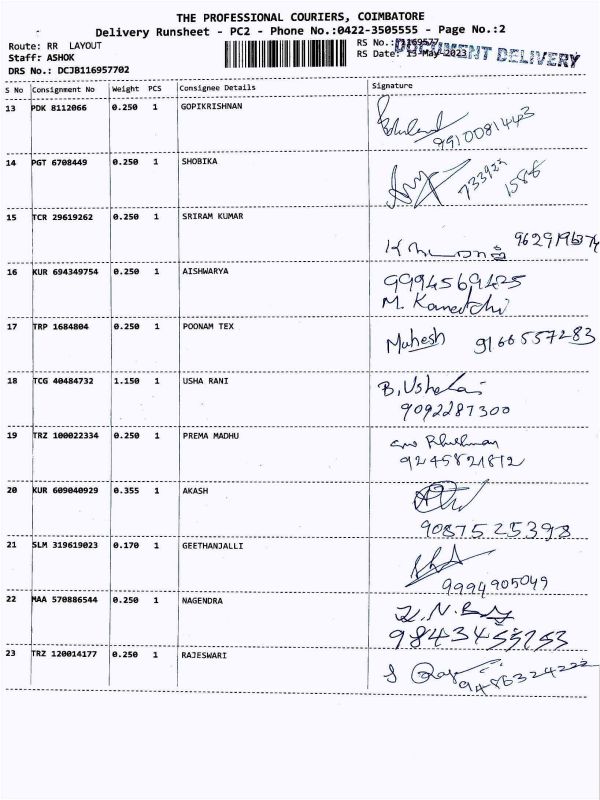 THE PROFESSIONAL COURIERS, COIMBATORE
Delivery Runsheet - PC2 - Phone No.:0422-3505555 - Page No.:2
Route: RR LAYOUT
Staff: ASHOK
DRS No.: DCJB116957702
RS No.:
RS Date: 13-May-2023
DOCUMENT DELIVERY
S No Consignment No Weight PCS Consignee Details Signature
13 PDK 8112066 0.250 1 GOPIKRISHNAN
9910081443
14 PGT 6708449 0.250 1 SHOBIKA
15 TCR 29619262 0.250 1 SRIRAM KUMAR
16 KUR 694349754 0.250 1 AISHWARYA
9994569425
M.
17 TRP 1684804 0.250 1 POONAM TEX
Mahesh 9166557283
18 TCG 40484732 1.150 1 USHA RANI
9092287300
19 TRZ 100022334 0.250 1 PREMA MADHU
9245821812
20 KUR 609040929 0.355 1 AKASH
9087525398
21 SLM 319619023 0.170 1 GEETHANJALLI
9994905049
22 MAA 570886544 0.250 1 NAGENDRA
23 TRZ 120014177 0.250 1 RAJESWARI
9486324222